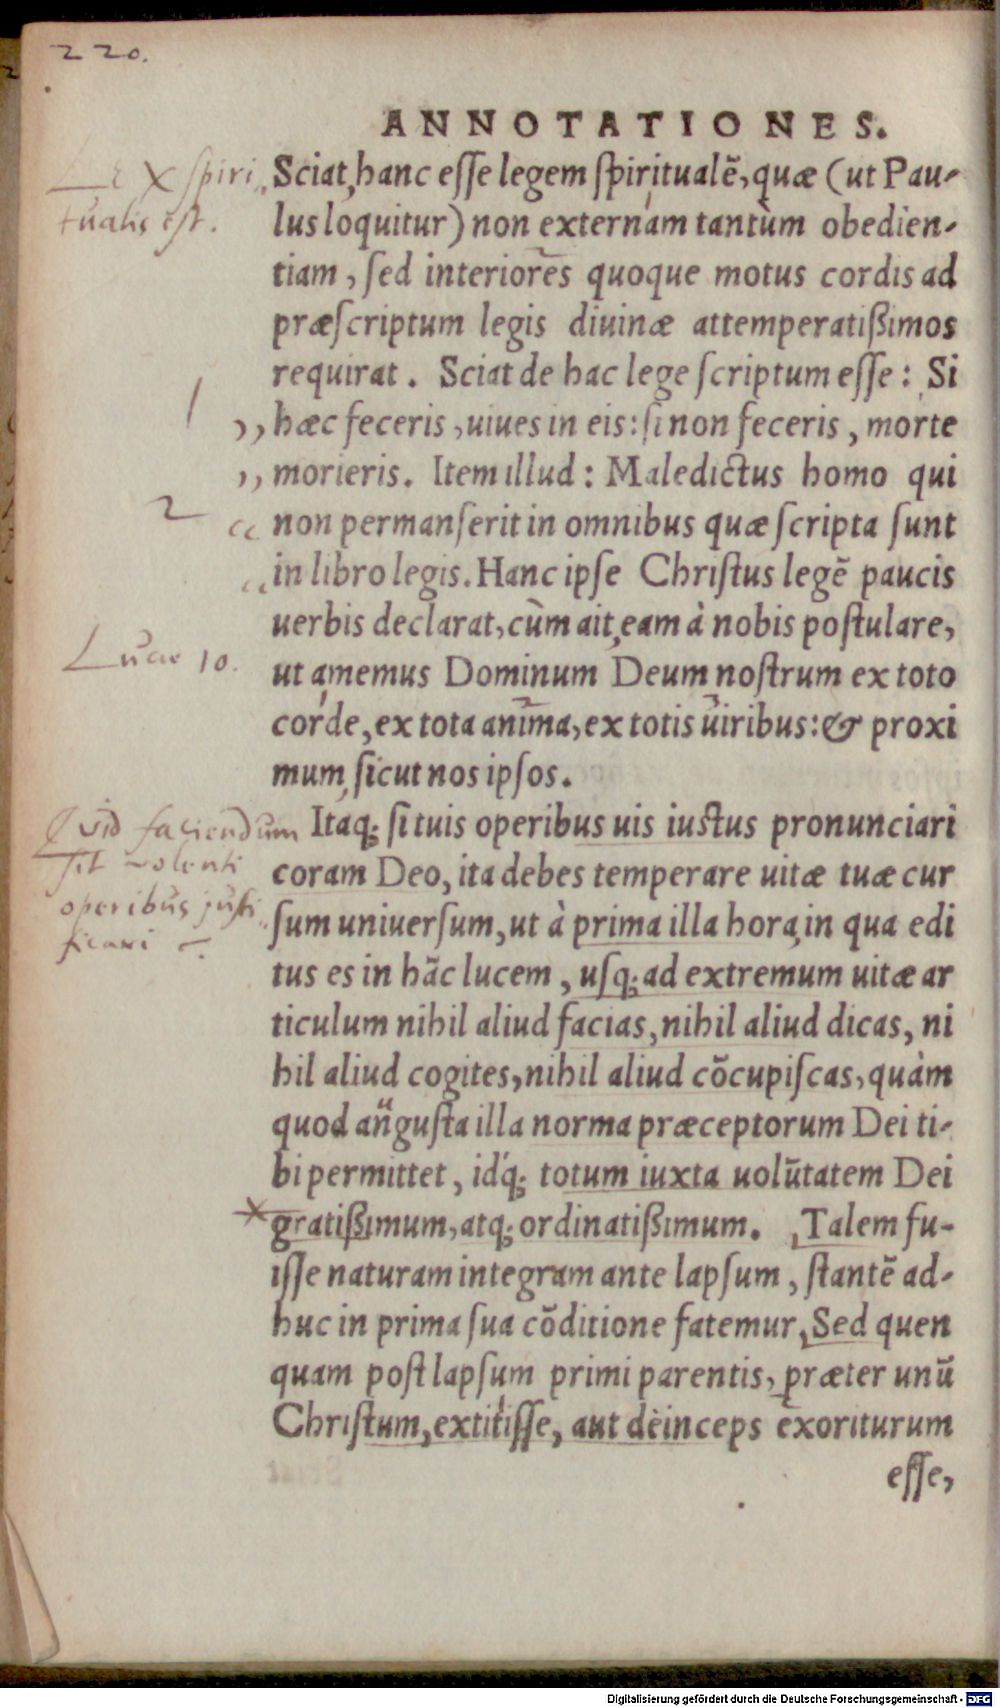 220.
ANNOTATIONES.
Lex spiri
tualis est.
Sciat, hanc eſſe legem ſpiritualē, quæ (ut Pau-
lus loquitur) non externam tantùm obedien-
tiam, ſed interiores quoque motus cordis ad
præſcriptum legis diuinæ attemperatißimos
requirat. Sciat de hac lege ſcriptum eſſe: Si
1
,, hæc feceris, uiues in eis: ſi non feceris, morte
,, morieris. Item illud: Maledictus homo qui
2
non permanſerit in omnibus quæ ſcripta ſunt
in libro legis. Hanc ipſe Chriſtus legē paucis
uerbis declarat, cùm ait, eam à nobis poſtulare,
Lucae 10.
ut amemus Dominum Deum noſtrum ex toto
corde, ex tota anima, ex totis uiribus: & proxi
mum, ſicut nos ipſos.
Quid faciendum
sit volenti
operibus justi
ficari
Itaq; ſi tuis operibus uis iuſtus pronunciari
coram Deo, ita debes temperare uitæ tuæ cur
ſum uniuerſum, ut à prima illa hora, in qua edi
tus es in hāc lucem, uſq; ad extremum uitæ ar
ticulum nihil aliud facias, nihil aliud dicas, ni
hil aliud cogites, nihil aliud cōcupiſcas, quàm
quod anguſta illa norma præceptorum Dei ti-
bi permittet, idq́; totum iuxta uolūtatem Dei
gratißimum, atq; ordinatißimum. Talem fu-
iſſe naturam integram ante lapſum, ſtantē ad-
huc in prima ſua cōditione fatemur, Sed quen
quam poſt lapſum primi parentis, præter unū
Chriſtum, extitiſſe, aut deinceps exoriturum
eſſe,
Digitalisierung gefördert durch die Deutsche Forschungsgemeinschaft - DFG